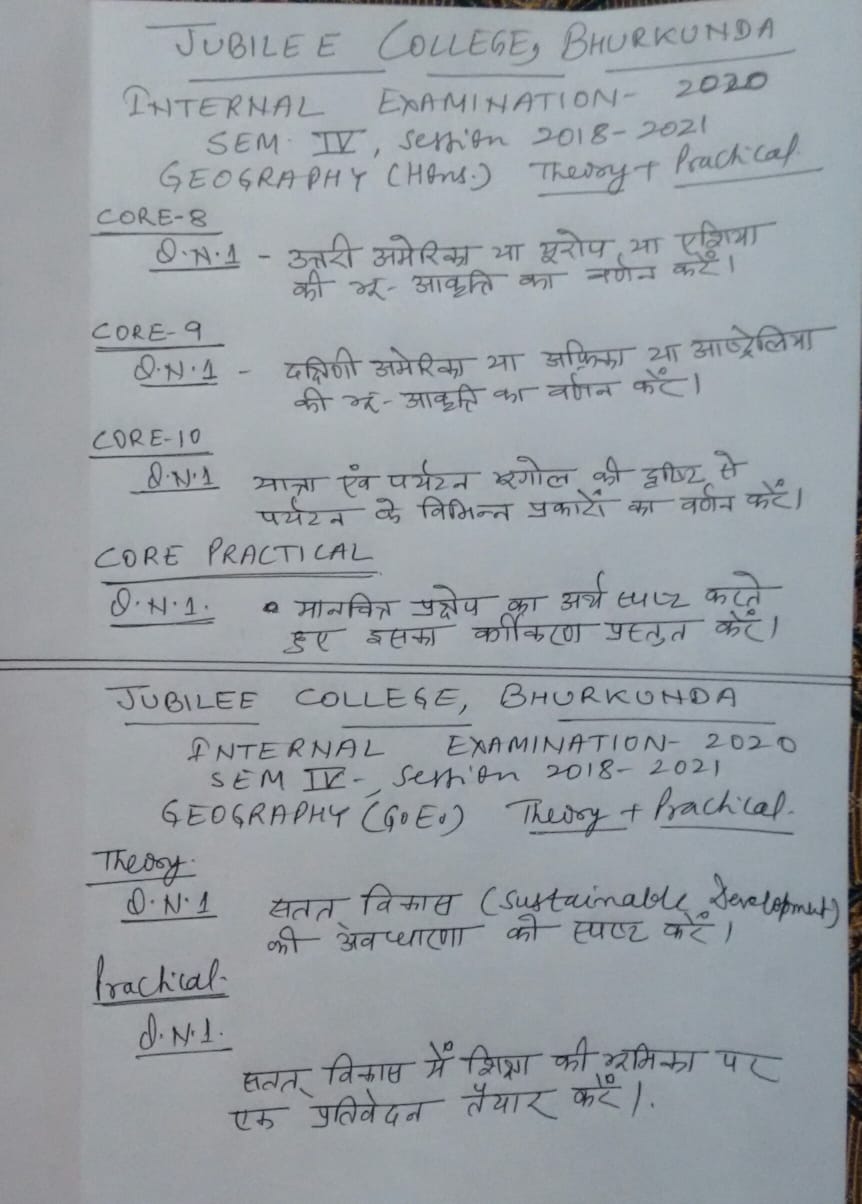 JUBILEE COLLEGE, BHURKUNDA
INTERNAL EXAMINATION- 2020
SEM. IV, session 2018-2021
GEOGRAPHY (Hons.) Theory + Practical.
CORE-8
Q.N.1 - उत्तरी अमेरिका या यूरोप या एशिया
की भू-आकृति का वर्णन करें।
CORE-9
Q.N.1 - दक्षिणी अमेरिका या अफ्रिका या आष्ट्रेलिया
की भू-आकृति का वर्णन करें।
CORE-10
Q.N.1 यात्रा एंव पर्यटन भूगोल की दृष्टि से
पर्यटन के विभिन्न प्रकारों का वर्णन करें।
CORE PRACTICAL
Q.N.1. • मानचित्र प्रक्षेप का अर्थ स्पष्ट करते
हुए इसका वर्गीकरण प्रस्तुत करें।
JUBILEE COLLEGE, BHURKUNDA
INTERNAL EXAMINATION- 2020
SEM IV-, session 2018-2021
GEOGRAPHY (G.E.) Theory + Practical.
Theory.
Q.N.1 सतत् विकास (Sustainable Development)
की अवधारणा को स्पष्ट करें।
Practical.
Q.N.1.
सतत् विकास में शिक्षा की भूमिका पर
एक प्रतिवेदन तैयार करें।.